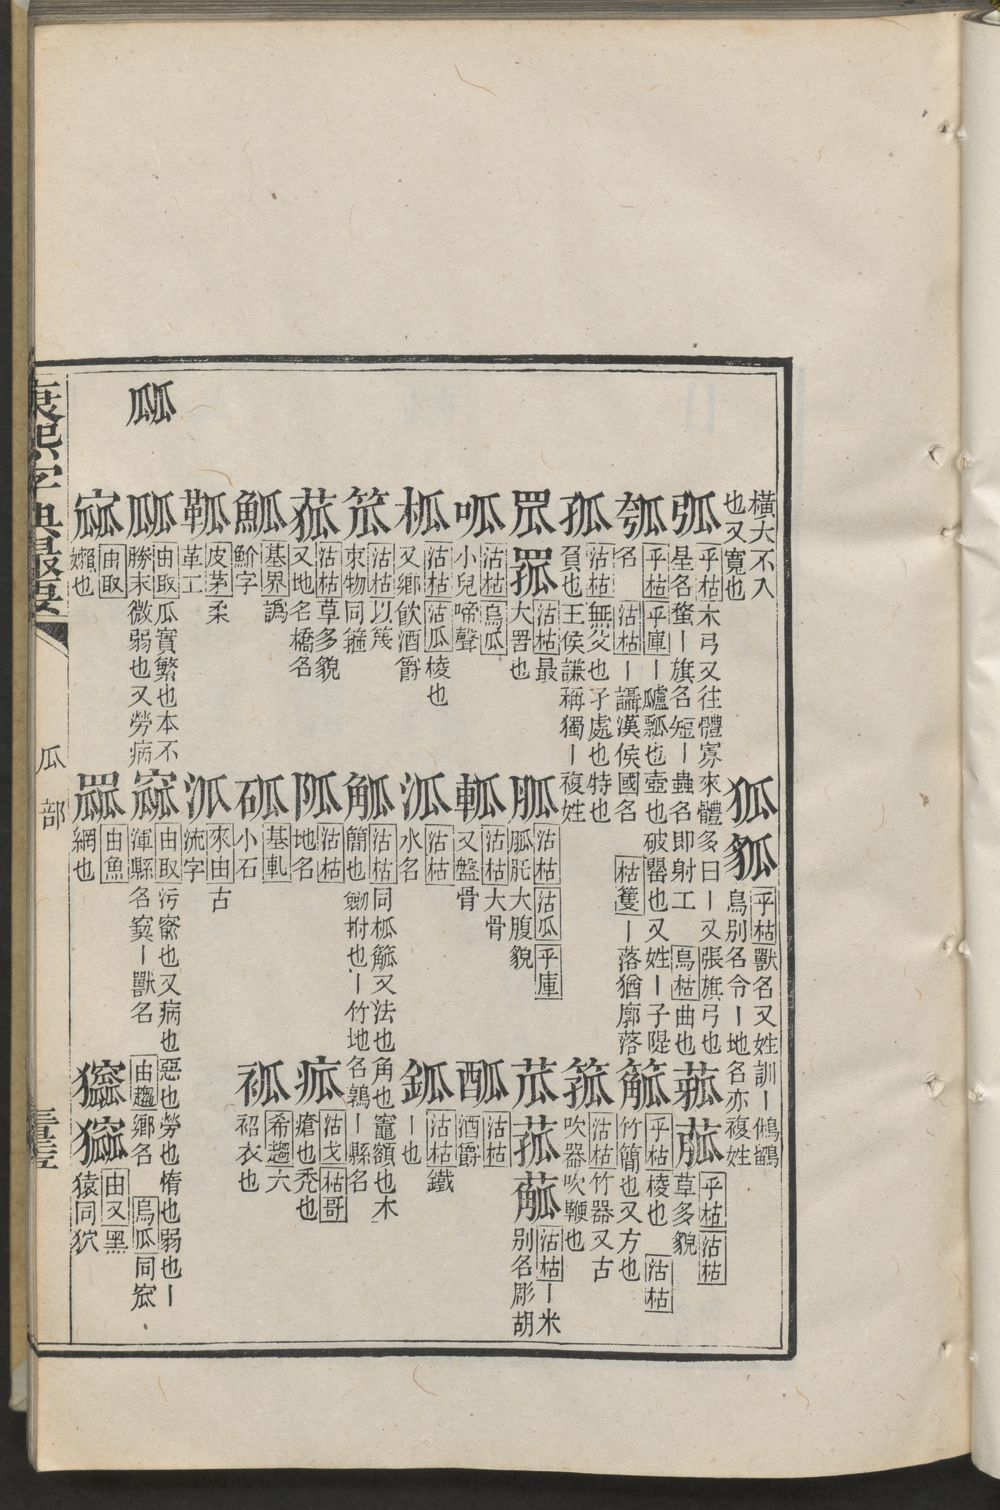 橫大不入
也又寬也
狐
乎枯獸名又姓訓丨鵂鶹
鳥別名令丨地名亦複姓
弧
乎枯木弓又往體寡來體多曰丨又張旗弓也
星名蝥丨旗名短丨蟲名即射工 烏枯曲也
菰苽
乎枯沽枯
草多貌
瓠
乎枯乎庫丨瓐瓢也壺也破罌也又姓丨子隄
名 沽枯丨讘漢侯國名 枯隻丨落猶廓落
觚
乎枯棱也 沽枯
竹簡也又方也
孤
沽枯無父也孑處也特也
負也王侯謙稱獨丨複姓
箛
沽枯竹器又古
吹器吹鞭也
罛
沽枯最
大罟也
胍
沽枯沽瓜乎庫
胍肛大腹貌
苽菰
沽枯丨米
別名彫胡
呱
沽枯烏瓜
小兒啼聲
軱
沽枯大骨
又盤骨
沽枯
酒爵
柧
沽枯沽瓜棱也
又鄉飲酒爵
泒
沽枯
水名
鈲
沽枯鐵
丨也
笟
沽枯以篾
束物同箍
觚
沽枯同柧觚又法也角也竈額也木
簡也劒拊也丨竹地名鷣丨縣名
菰
沽枯草多貌
又地名橋名
沽枯
地名
沽戈枯哥
瘡也禿也
基界譌
魪字
基軋
小石
希趨六
袑衣也
皮茅柔
革工
泒
來由古
流字
㼌
㼌
由取瓜實繁也本不
勝末微弱也又勞病
窳
由取污窬也又病也惡也勞也惰也弱也丨
渾縣名窫丨獸名 由趨鄉名 烏瓜同窊
由取
嬾也
由魚
網也
由又黑
猿同狖
康熙字典撮要
瓜部